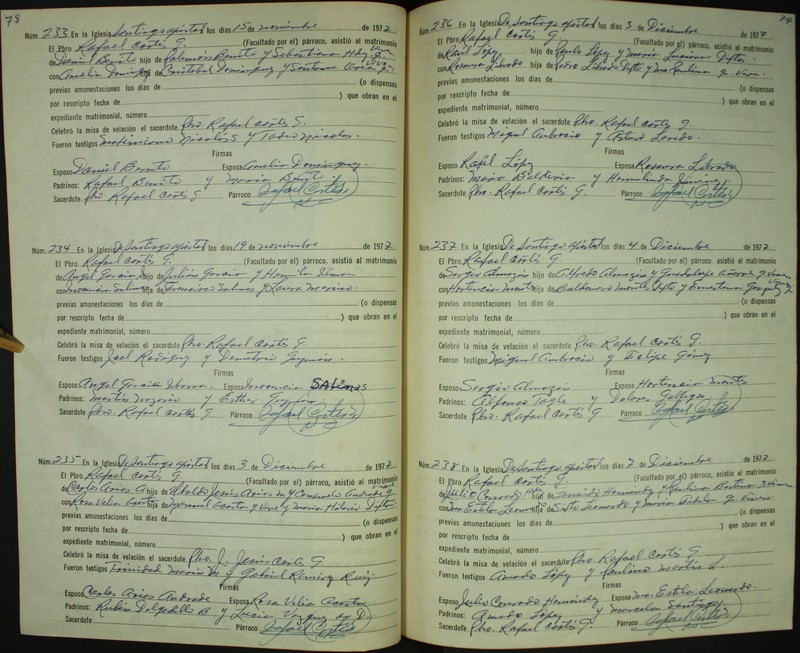 78
Núm. 233 En la Iglesia de Santiago Apóstol los días 15 de noviembre de 1972
El Pbro. Rafael Cortés G. (Facultado por el) párroco, asistió al matrimonio
de Daniel Benito hijo de Benito y Sebastiana
con Amelia hija de Cristobal Dominguez y
previas amonestaciones los días de (o dispensas
por rescripto fecha de ) que obran en el
expediente matrimonial, número
Celebró la misa de velación el sacerdote Pbro. Rafael Cortés G.
Fueron testigos Nicolás y Tadeo Nicolas.
Firmas
Esposo Daniel Benito Esposa Amelia Dominguez.
Padrinos: Rafael Benito y Maria Benito
Sacerdote Pbro Rafael Cortés G Párroco Rafael Cortés
Núm. 234 En la Iglesia De Santiago Apóstol los días 19 de noviembre de 1972
El Pbro. Rafael Cortés G. (Facultado por el) párroco, asistió al matrimonio
de Angel Garcia hijo de Julian Garcia y
con hija de Francisco Salinas y Laura
previas amonestaciones los días de (o dispensas
por rescripto fecha de ) que obran en el
expediente matrimonial, número
Celebró la misa de velación el sacerdote Pbro. Rafael Cortés G.
Fueron testigos Joel Rodriguez y Demetrio
Firmas
Esposo Angel Garcia Esposa Inocencia SALINAS
Padrinos: Martin y Esther
Sacerdote Pbro. Rafael Cortés G Párroco Rafael Cortés
Núm. 235 En la Iglesia De Santiago Apóstol los días 3 de Diciembre de 1972
El Pbro. Rafael Cortés G (Facultado por el) párroco, asistió al matrimonio
de Carlos Arias A. hijo de Ubaldo Jesús Arias y Consuelo Andrade
con Rosa Velia hija de Manuel Acosta y Maria
previas amonestaciones los días de (o dispensas
por rescripto fecha de ) que obran en el
expediente matrimonial, número
Celebró la misa de velación el sacerdote Pbro. J. Jesús Cortés G
Fueron testigos Trinidad Marin M y Gabriel Ramirez Ruiz
Firmas
Esposo Carlos Arias Andrade Esposa Rosa Velia Acosta
Padrinos: Rubén Delgadillo B y Lucia
Sacerdote Párroco Rafael Cortés
79
Núm. 236 En la Iglesia De Santiago Apóstol los días 3 de Diciembre de 1972
El Pbro. Rafael Cortés G (Facultado por el) párroco, asistió al matrimonio
de López hijo de Paulo López y Maria Luciana Dftos.
con Rosaura hija de Pedro y Ma Paulina
previas amonestaciones los días de (o dispensas
por rescripto fecha de ) que obran en el
expediente matrimonial, número
Celebró la misa de velación el sacerdote Pbro. Rafael Cortés G.
Fueron testigos Miguel Ambrocio y Arturo
Firmas
Esposo López Esposa Rosaura
Padrinos: Mario y Hermelinda Jimenez
Sacerdote Pbro. Rafael Cortés G. Párroco Rafael Cortés
Núm. 237 En la Iglesia De Santiago Apóstol los días 4 de Diciembre de 1972
El Pbro. Rafael Cortés G. (Facultado por el) párroco, asistió al matrimonio
de Sergio hijo de Alfredo y Guadalupe
con Hortencia hija de Baldomero y Ernestina
previas amonestaciones los días de (o dispensas
por rescripto fecha de ) que obran en el
expediente matrimonial, número
Celebró la misa de velación el sacerdote Pbro. Rafael Cortés G.
Fueron testigos Miguel Ambrocio y Felipe Gómez
Firmas
Esposo Sergio Esposa Hortencia
Padrinos: Alfonso Tagle y Dolores
Sacerdote Pbro. Rafael Cortés G. Párroco Rafael Cortés
Núm. 238 En la Iglesia De Santiago Apóstol los días 7 de Diciembre de 1972
El Pbro. Rafael Cortés G. (Facultado por el) párroco, asistió al matrimonio
de Julio Conrado hijo de Hernández y Paulina
con Ma. Estela Leonardo hija de Leonardo y Maria
previas amonestaciones los días de (o dispensas
por rescripto fecha de ) que obran en el
expediente matrimonial, número
Celebró la misa de velación el sacerdote Pbro. Rafael Cortés G
Fueron testigos Amado López y Paulino
Firmas
Esposo Julio Conrado Hernández Esposa Ma. Estela Leonardo
Padrinos: Amado López y Marcela Santiago
Sacerdote Pbro. Rafael Cortés G. Párroco Rafael Cortés